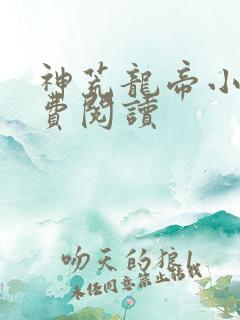 神荒龍帝小
費閱讀
吻天的狼
未经同意禁止转载